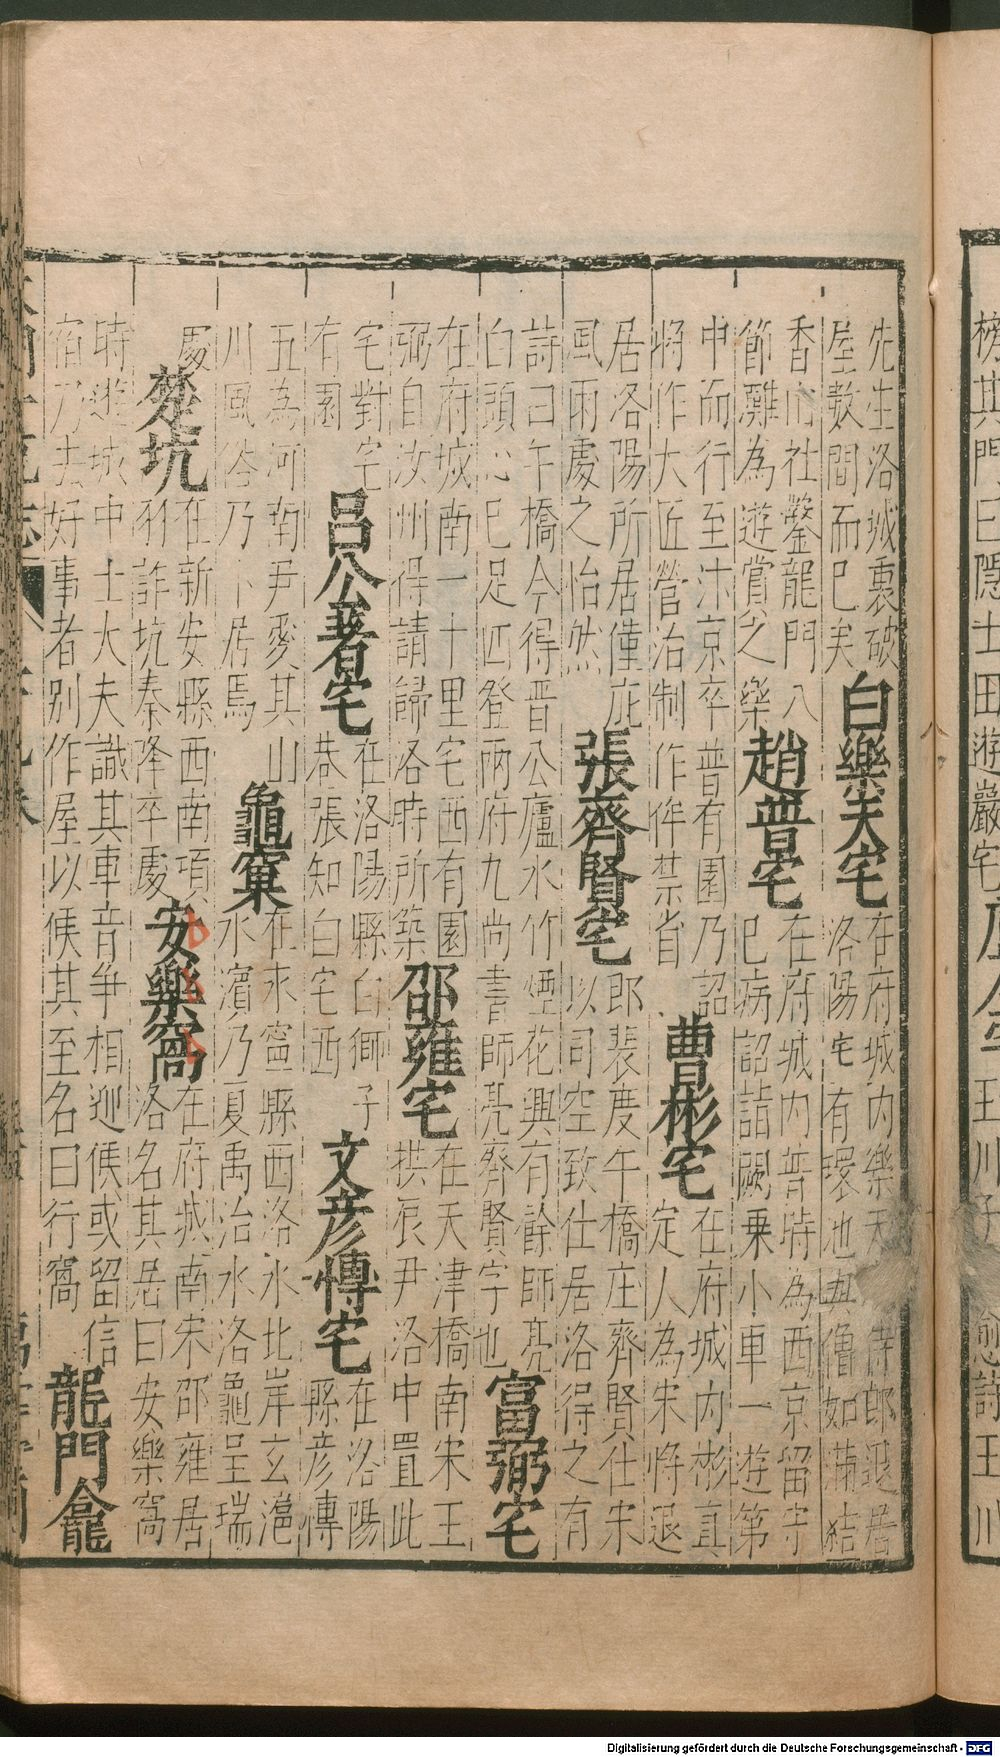 榜其門曰隱士田遊巖宅 玉川子 愈詩玉川
先生洛城裏破
屋數間而已矣
白樂天宅
在府城内樂天 侍郎退居
洛陽宅有環池與僧如滿結
香山社鑿龍門八
節灘為遊賞之樂
趙普宅
在府城内普時為西京留守
已病詔詣闕乗小車一遊第
中而行至汴京卒普有園乃詔
將作大匠營治制作侔禁省
曹彬宅
在府城内彬真
定人為宋將退
居洛陽所居僅庇
風雨處之怡然
張齊賢宅
郎裴度午橋庄齊賢仕宋
以司空致仕居洛得之有
詩曰午橋今得晉公廬水竹煙花興有餘師亮
白頭心已足四登兩府九尚書師亮齊賢字也
富弼宅
在府城南一十里宅西有園
弼自汝州得請歸洛時所築
邵雍宅
在天津橋南宋王
拱辰尹洛中置此
宅對宅
有園
呂公著宅
在洛陽縣白獅子
巷張知白宅西
文彥愽宅
在洛陽
縣彥傳
五為河南尹愛其山
川風俗乃卜居焉
龜窠
在永寧縣西洛水北岸玄滬
水濱乃夏禹治水洛龜呈瑞
處
楚坑
在新安縣西南項
羽詐坑秦降卒處
安樂窩
在府城南宋邵雍居
洛名其居曰安樂窩
時遊城中士大夫識其車音爭相迎候或留信
宿乃去好事者别作屋以俟其至名曰行窩
龍門龕
Digitalisierung gefördert durch die Deutsche Forschungsgemeinschaft - DFG